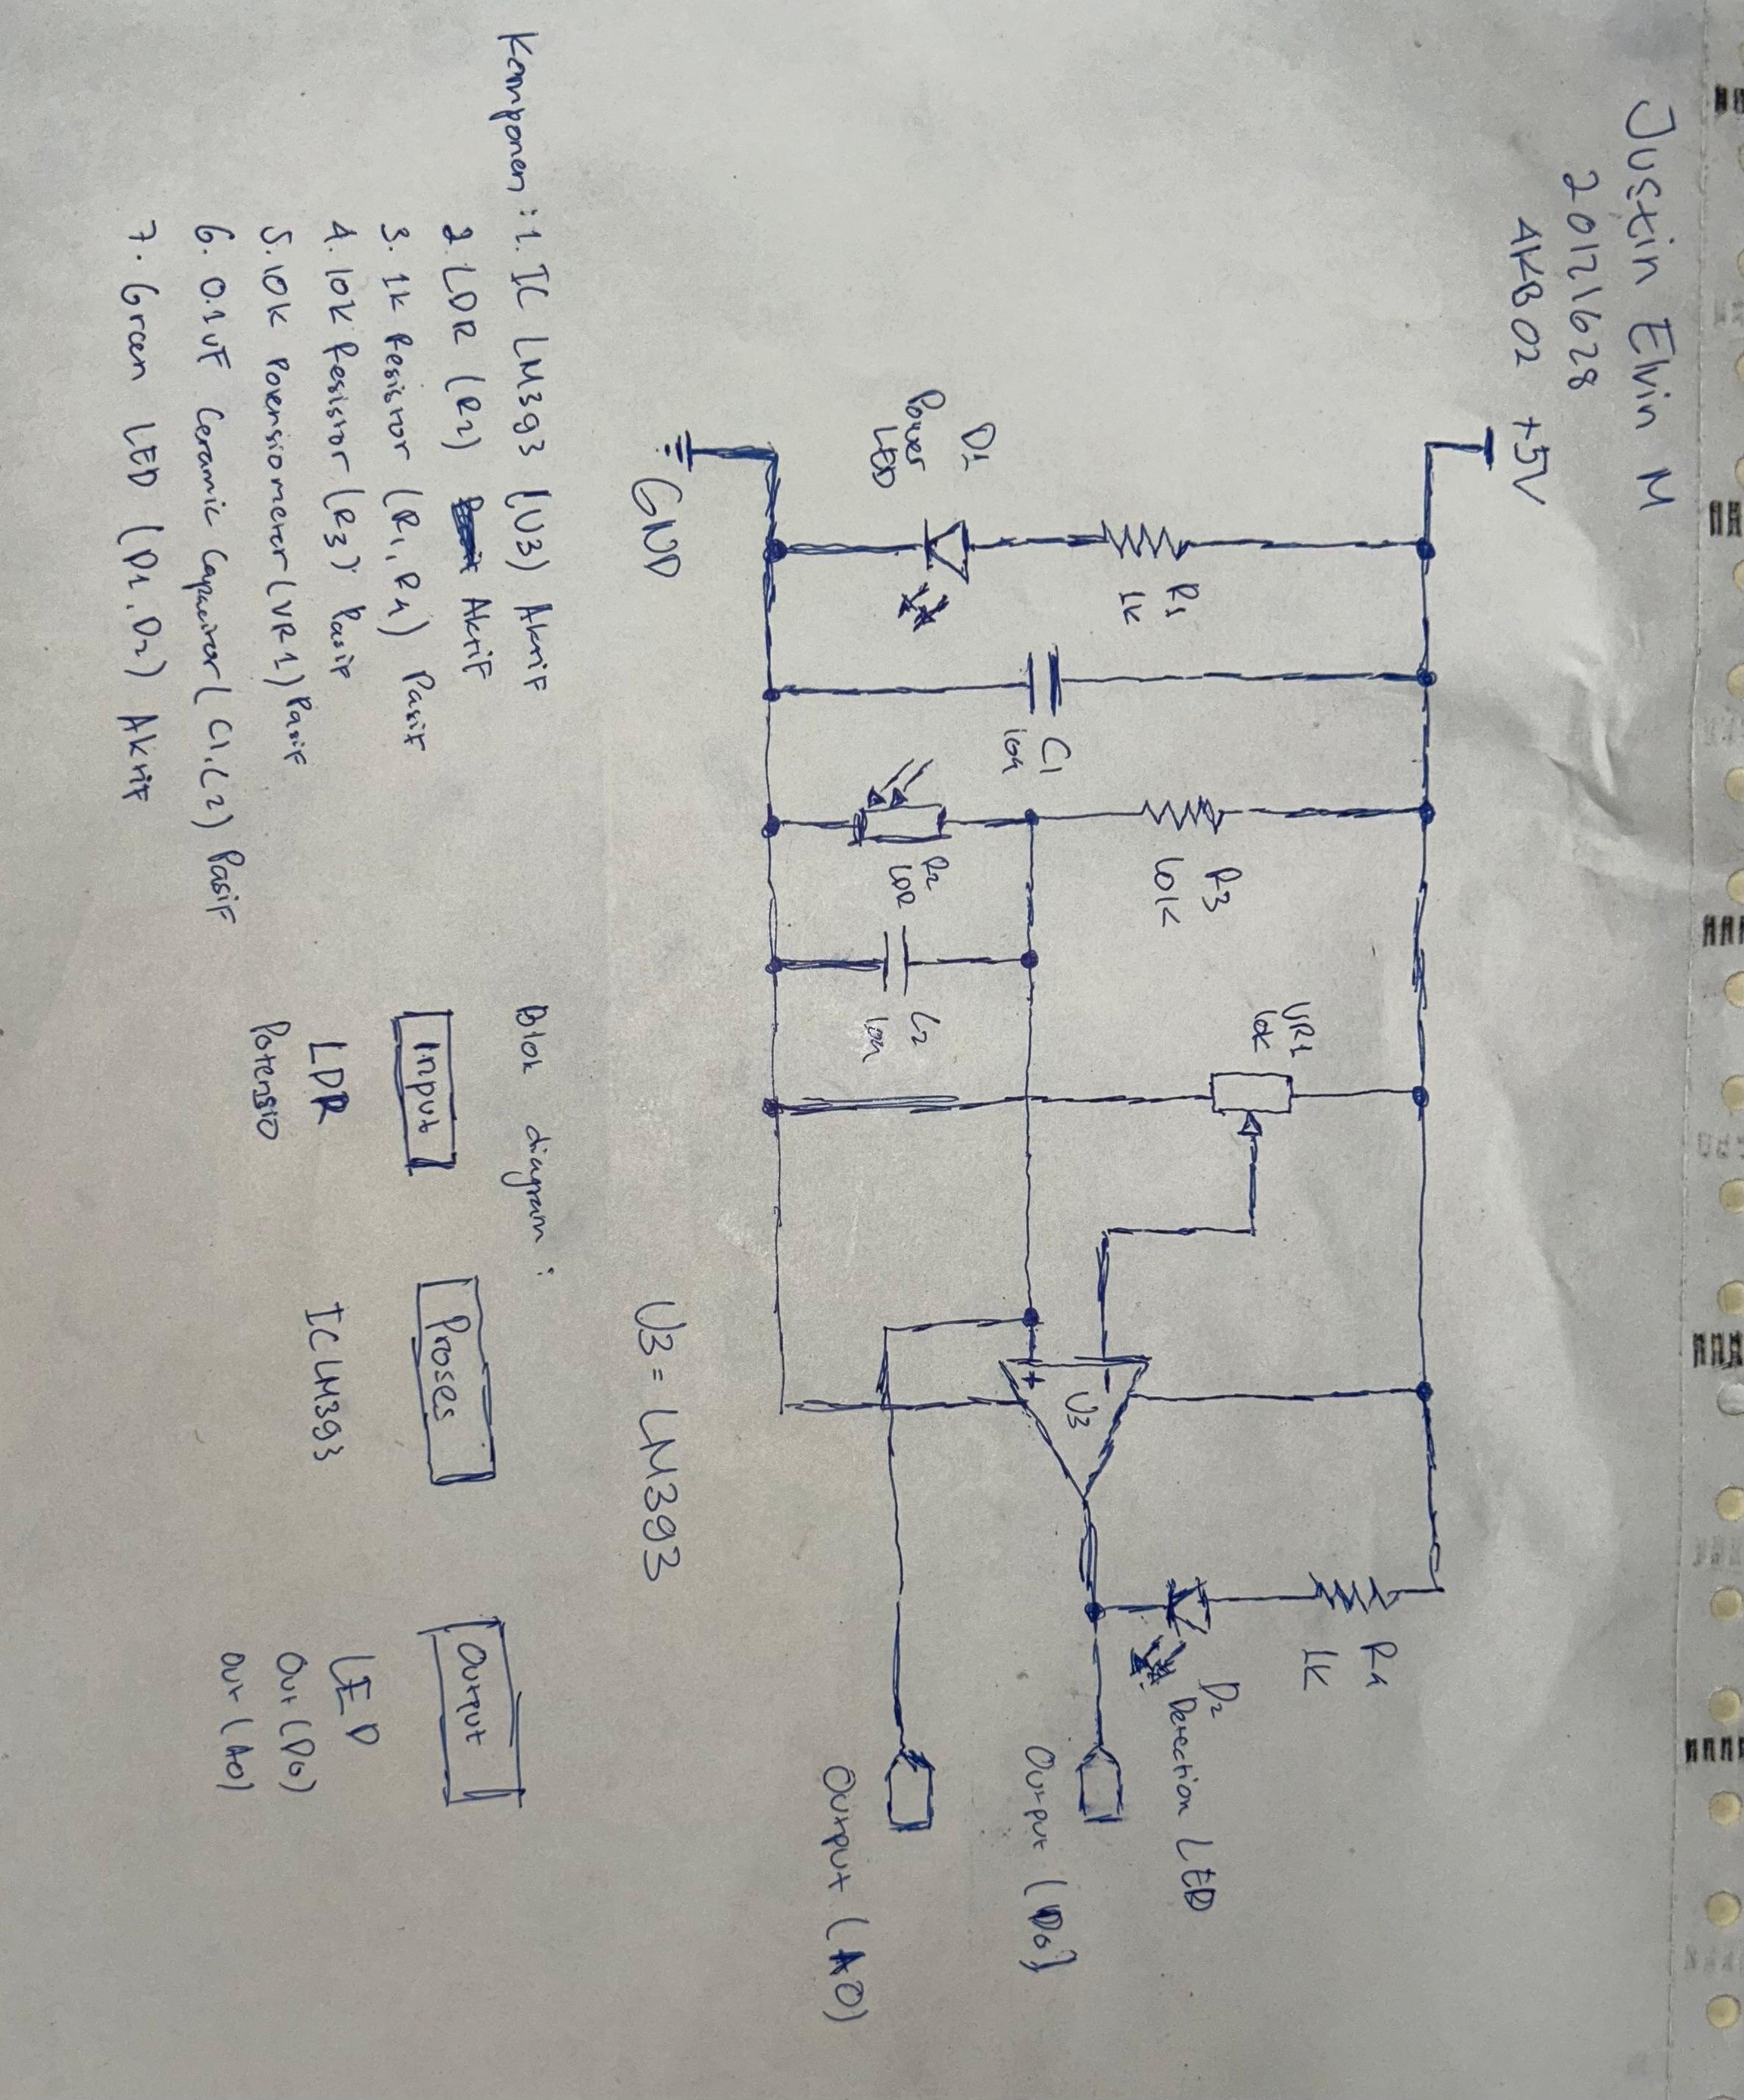 Justin Elvin M
20121628
4KB02
+5V
R1
1k
D1
Power
LED
C1
10n
R3
10k
R2
LDR
C2
10n
VR1
10k
U3
+
-
R4
1k
D2
Detection LED
Output (D0)
Output (A0)
GND
U3 = LM393
Komponen : 1. IC LM393 (U3) Aktif
2. LDR (R2) Aktif
3. 1k Resistor (R1, R4) Pasif
4. 10k Resistor (R3) Pasif
5. 10k Potensiometer (VR1) Pasif
6. 0.1uF Ceramic Capacitor (C1, C2) Pasif
7. Green LED (D1, D2) Aktif
Blok diagram :
Input
LDR
Potensio
Proses
IC LM393
Output
LED
Out (D0)
Out (A0)